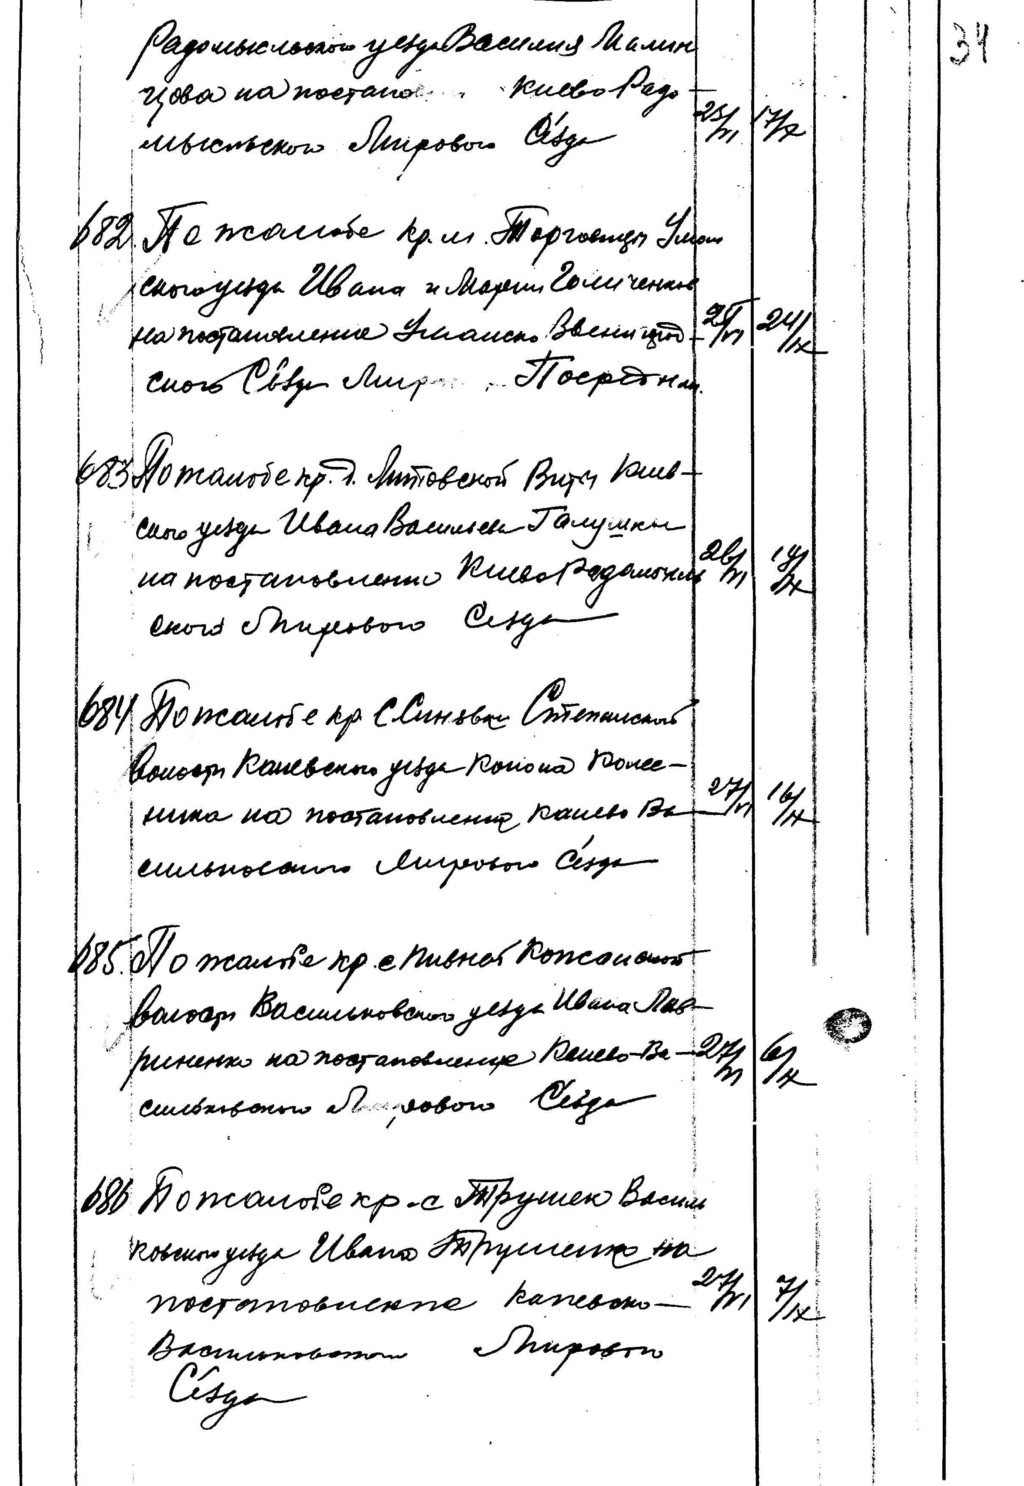 34
Радомысльского уезда Василия Малин
цова на постано Киево Радо-
мысльского Мирового Сѣзда 25/VI 17/X
682 По жалобе кр. м. Торговицы Уман
ского уезда Ивана и Марии Голиченков
на постановление Уманско Звенигород- 25/VI 24/IX
ского Сѣзда Мир Посредник.
683 По жалобе кр. д. Литовской Виты Киев-
ского уезда Ивана Васильева Галушки
на постановление Киево Радомысль 26/VI 19/IX
ского Мирового Сезда
684 По жалобе кр С Синявки Степанской
волости Каневского уезда Конона Колес-
ника на постановление Канево Ва 27/VI 16/IX
сильковского Мирового Сѣзда
685. По жалобе кр. с Пивней Кожанской
волости Васильковского уезда Ивана Лав-
риненко на постановление Канево-Ва- 27/VI 6/IX
сильковского Мирового Сѣзда
686 По жалобе кр. с Трушек Василь
ковского уезда Ивана Трушенко на
постановление Каневско- 27/VI 7/IX
Васильковского Мирового
Сѣзда